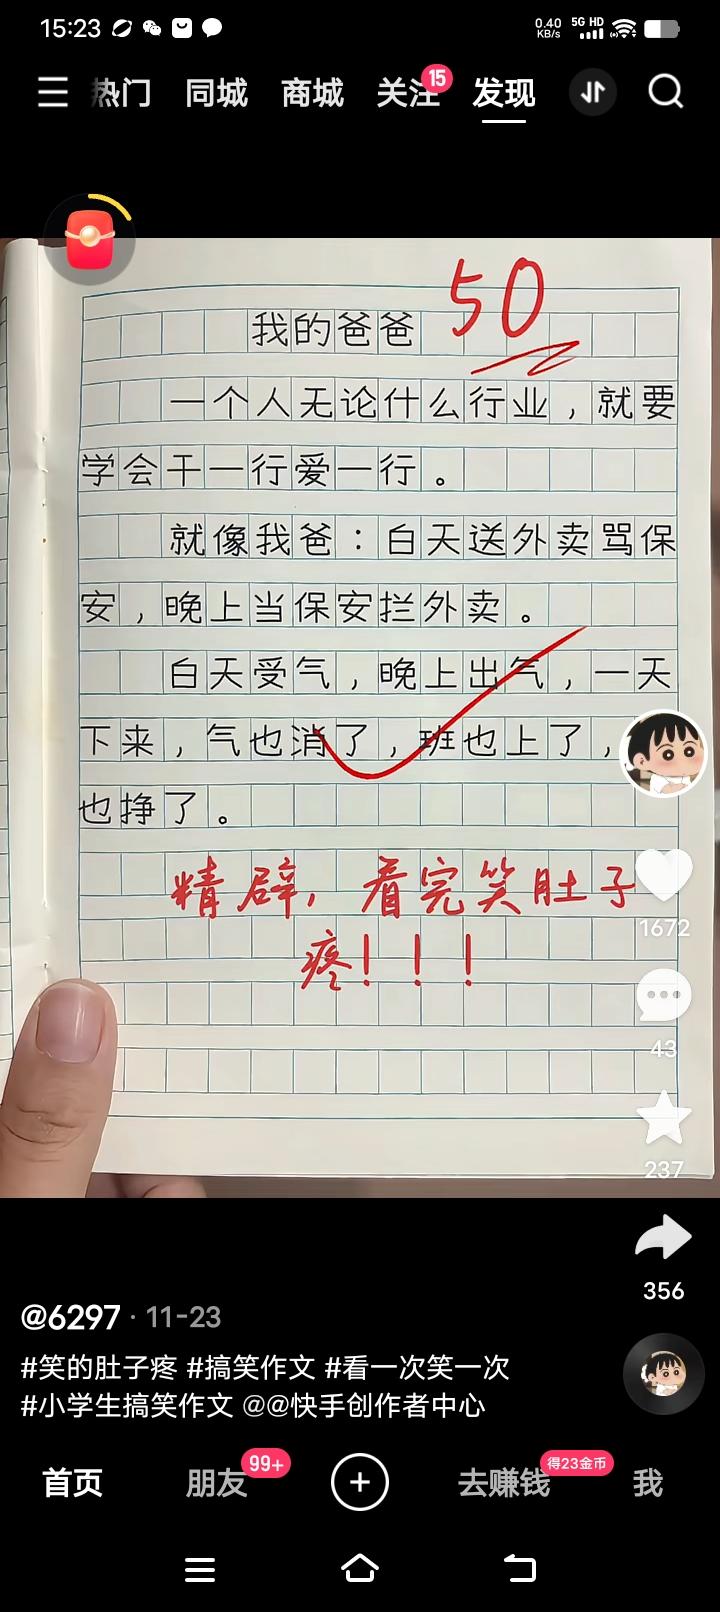 15:23
0.40
KB/s
5G HD
热门 同城 商城 关注 15 发现
我的爸爸
50
一个人无论什么行业，就要
学会干一行爱一行。
就像我爸：白天送外卖骂保
安，晚上当保安拦外卖。
白天受气，晚上出气，一天
下来，气也消了，班也上了，
也挣了。
精辟，看完笑肚子
疼！！！
1672
43
237
356
@6297 · 11-23
#笑的肚子疼 #搞笑作文 #看一次笑一次
#小学生搞笑作文 @@快手创作者中心
首页 朋友 99+ 去赚钱 得23金币 我